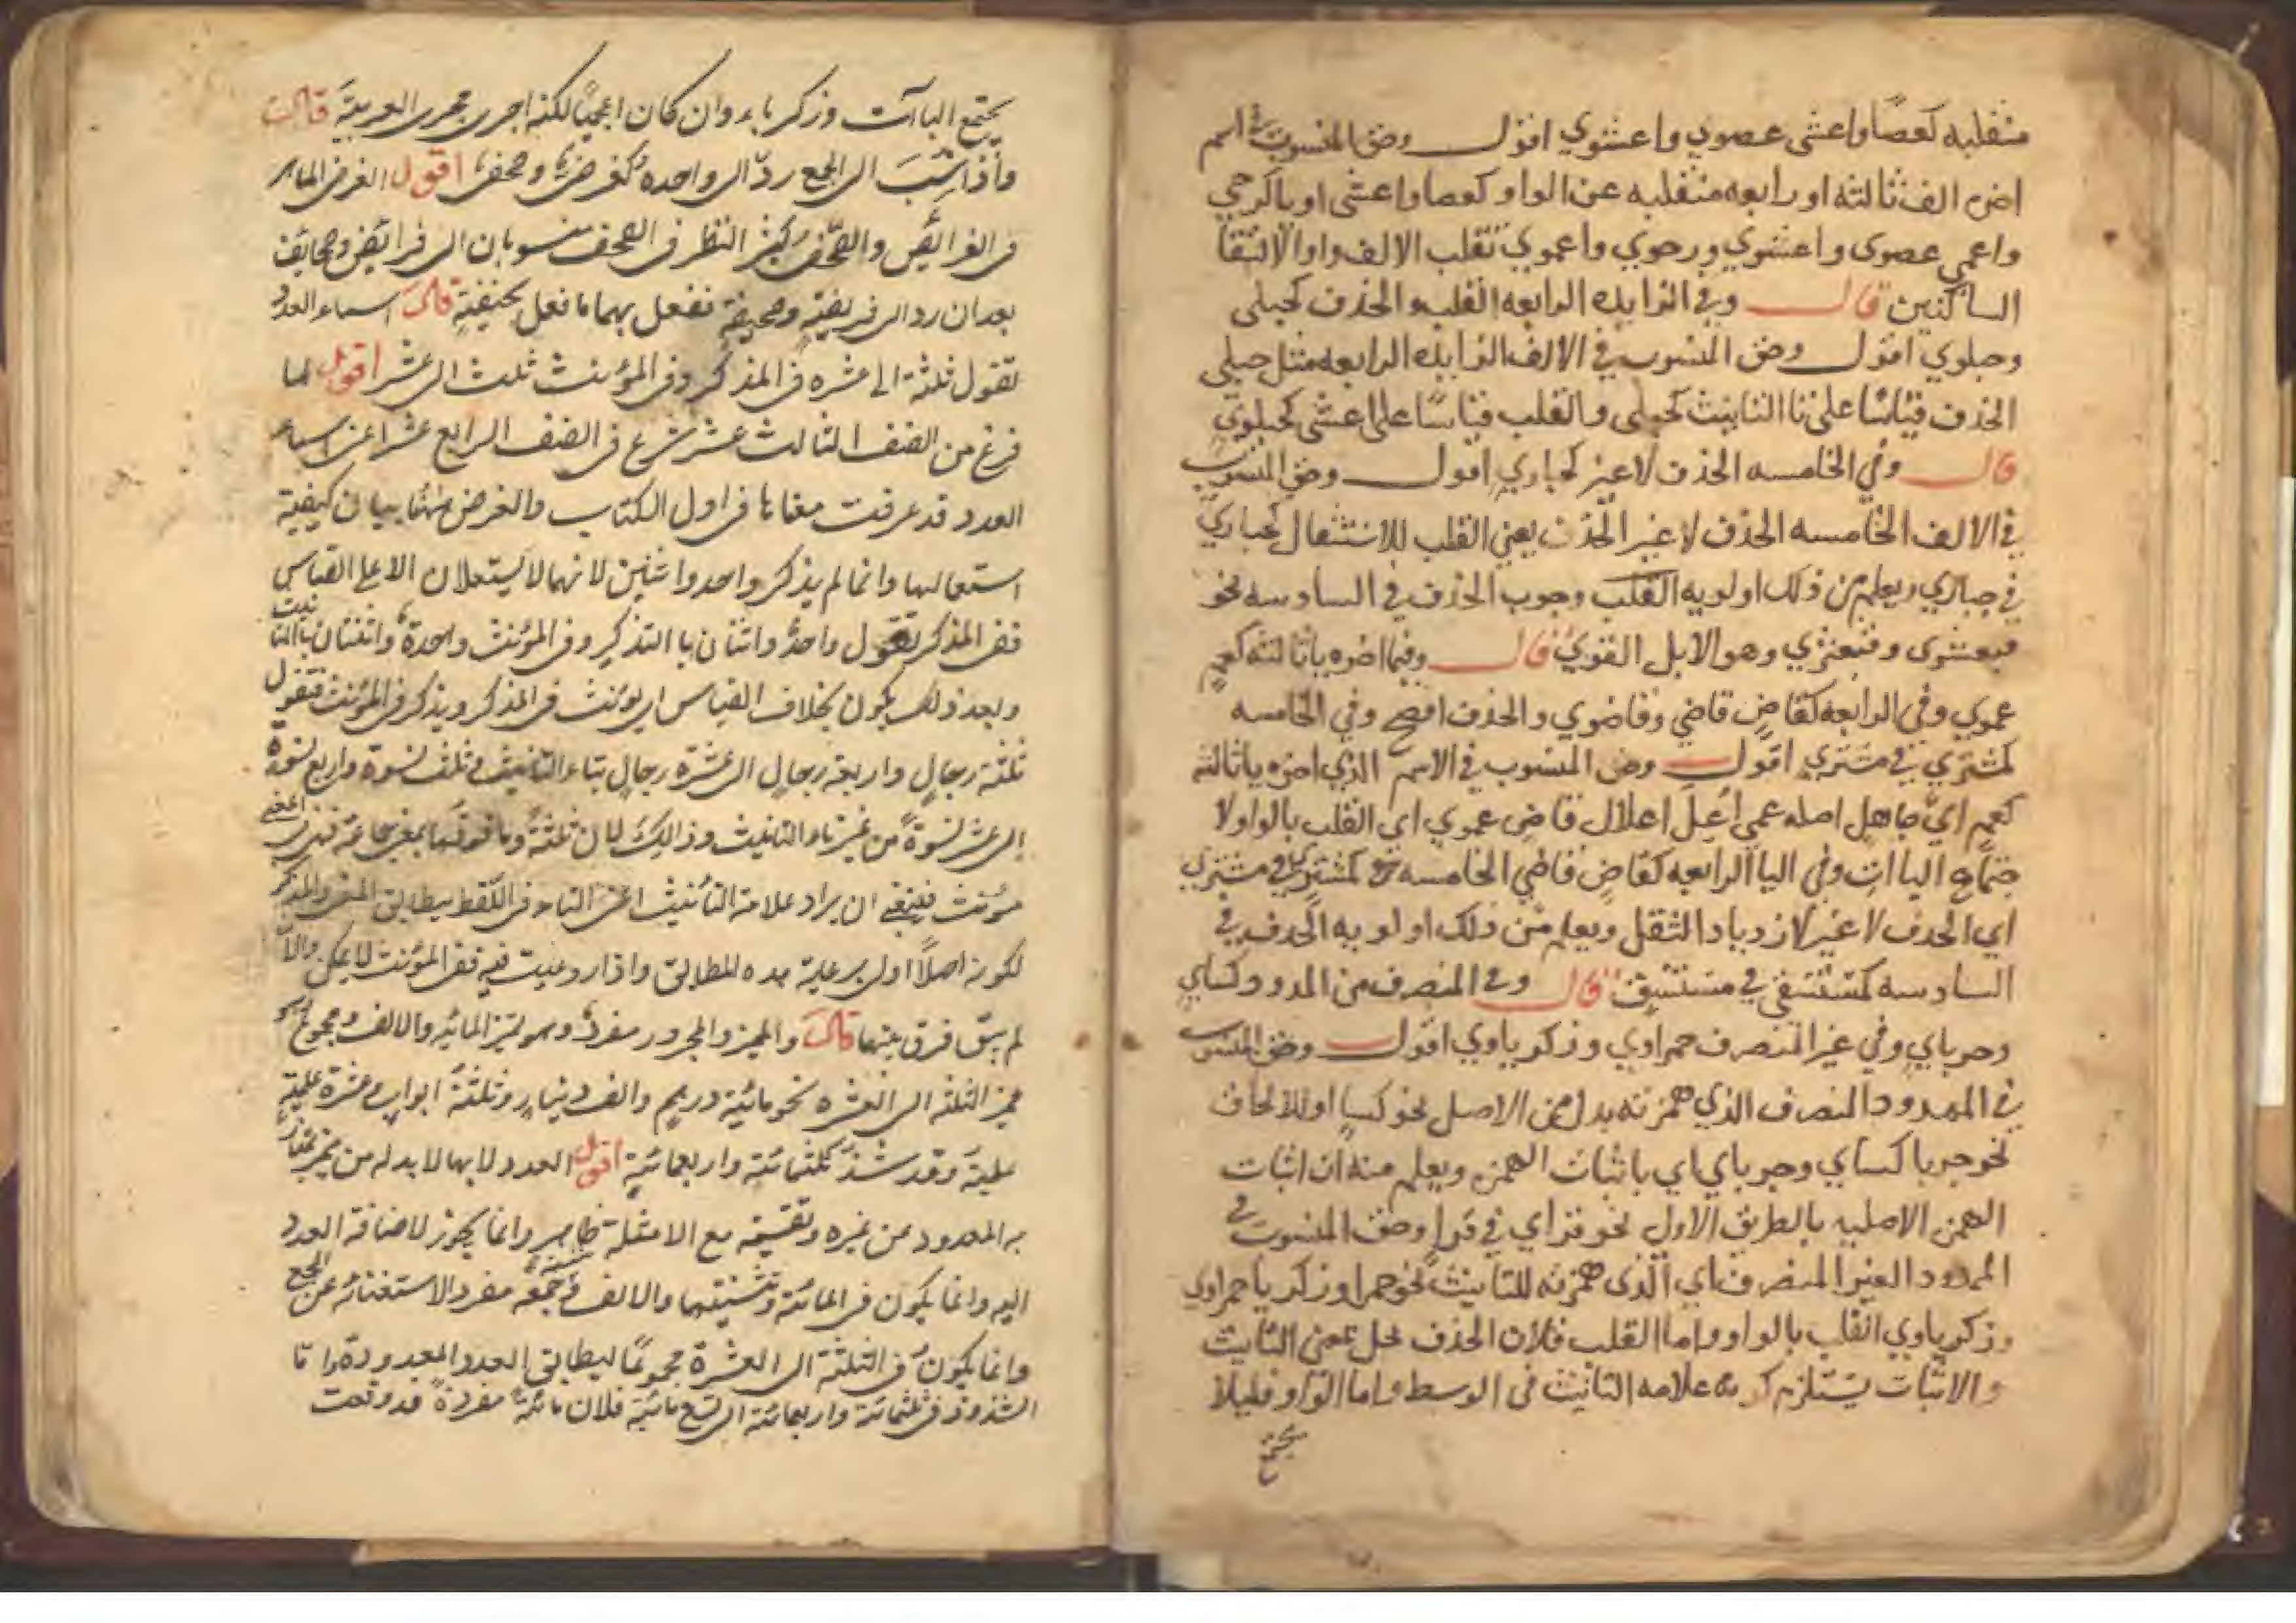 منقلبه كعصا واعشى عصوي واعشوي اقول وحق المنسوب في اسم
اخره الف ثالثه او رابعه منقلبه عن الواو كعصا واعشى او يا كرحي
واعمى عصوى واعشوي ورحوي واعموي تقلب الالف واوا لالتقا
الساكنين قال وفي الزايده الرابعه القلب والحذف كحبلى
وحبلوي اقول وحق المنسوب في الالف الزايده الرابعه مثل حبلى
الحذف قياسًا على تا التانيث كحبلى والقلب قياسًا على اعشى كحبلوي
قال وفي الخامسه الحذف لا غير كحباري اقول وحق المنسوب
في الالف الخامسه الحذف لا غير الحذف يعني القلب للاستثقال كحباري
في حباري ويعلم من ذلك اولويه القلب وجوب الحذف في السادسه نحو
قبعثرى وقبعثري وهو الابل القوي قال وفيما اخره يا ثالثه كعمٍ
عموي وفي الرابعه كقاضٍ قاضي وقاضوي والحذف افصح وفي الخامسه
كمشتري في مشتري اقول وحق المنسوب في الاسم الذي اخره يا ثالثه
كعمٍ اي جاهل اصله عمي اُعِلّ اعلال قاضٍ عموي اي القلب بالواو لا
جتماع اليااتِ وفي اليا الرابعه كقاضٍ قاضي الخامسه كمشتري في مشتري
اي الحذف لا غير لازدياد الثقل ويعلم من ذلك اولويه الحذف في
السادسه كمستسقي في مستسقٍ قال وفي المنصرف من الممدود كساي
وحرباي وفي غير المنصرف حمراوي وزكرياوي اقول وحق المنسوب
في الممدود المنصرف الذي همزته بدل من الاصل نحو كساٍ او للالحاق
نحو حربا كساي وحرباي اي باثبات الهمزه ويعلم منه ان اثبات
الهمزه الاصليه بالطريق الاول نحو قراي في قرا وحق المنسوب في
الممدود الغير المنصرف اي الذى همزته للتانيث نحو حمرا وزكريا حمراوي
وزكرياوي القلب بالواو واما القلب فلان الحذف يخل بمعنى التانيث
والاثبات يستلزم علامه التانيث فى الوسط واما الواو فليلا
يجتمع
يجتمع الياآت وزكرياء وان كان اعجميًا لكنه اجرى مجرى العربية قال
واذا نسب الى الجمع ردّ الى واحده كفرضى وصحفى اقول الغرض الماهر
فى الفرائض والصحفى كثير النظر فى الصحف منسوبان الى فرائض وصحايف
بعد ان رد الى فريضةٍ وصحيفةٍ نفعل بهما ما نفعل بحنيفةٍ قال اسماء العدد
تقول ثلثة الى عشره فى المذكر وفى المؤنث ثلث الى عشر اقول لما
فرغ من الصنف الثالث عشر شرع فى الصنف الرابع عشر اعنى اسماء
العدد قد عرفت معناها فى اول الكتاب والغرض ههنا بيان كيفية
استعمالها وانما لم يذكر واحد واثنين لانهما لا يستعملان الا على القياس
ففى المذكر تقول واحدٌ واثنان بالتذكير وفى المؤنث واحدة واثنتان بالتانيث
وبعد ذلك يكون بخلاف القياس اى يؤنث فى المذكر ويذكر فى المؤنث فتقول
ثلثة رجالٍ واربعة رجالٍ الى عشرة رجالٍ بتاء التانيث وثلث نسوة واربع نسوة
الى عشر نسوة من غير تاء التانيث وذالك لان ثلثة وما فوقها بمعنى جماعة فهى
مؤنث فينبغى ان يراد علامة التأنيث اعنى التاء فى اللفظ ليطابق المعنى والمذكر
لكونه اصلًا اولى برعاية هذه المطابق واذا روعيت فيه ففى المؤنث لا يمكن والا
لم يبق فرق بينهما قال والمميز والمجرور مفرد وهو تميز المائه والالف ومجموع وهو
مميز الثلثه الى العشره نحو مائية درهم والف دينارٍ وثلثة ابوابٍ وعشرة غلمةٍ
غلمة وقد شذ ثلثمائة واربعمائة اقول العدد لابهامه لا بد له من مميز
به المعدود من غيره وتقسيمه مع الامثلة ظاهر وانما يجوز لاضافة العدد
اليه وانما يكون فى المائة وتثنيتها والالف وجمعه مفرد الاستغنائه عن الجمع
وانما يكون فى الثلثة الى العشرة مجموعًا ليطابق العدد المعدوده واما
الشذوذ فى ثلثمائة واربعمائة الى تسع مائة فلان مائة مفردة قد وقعت